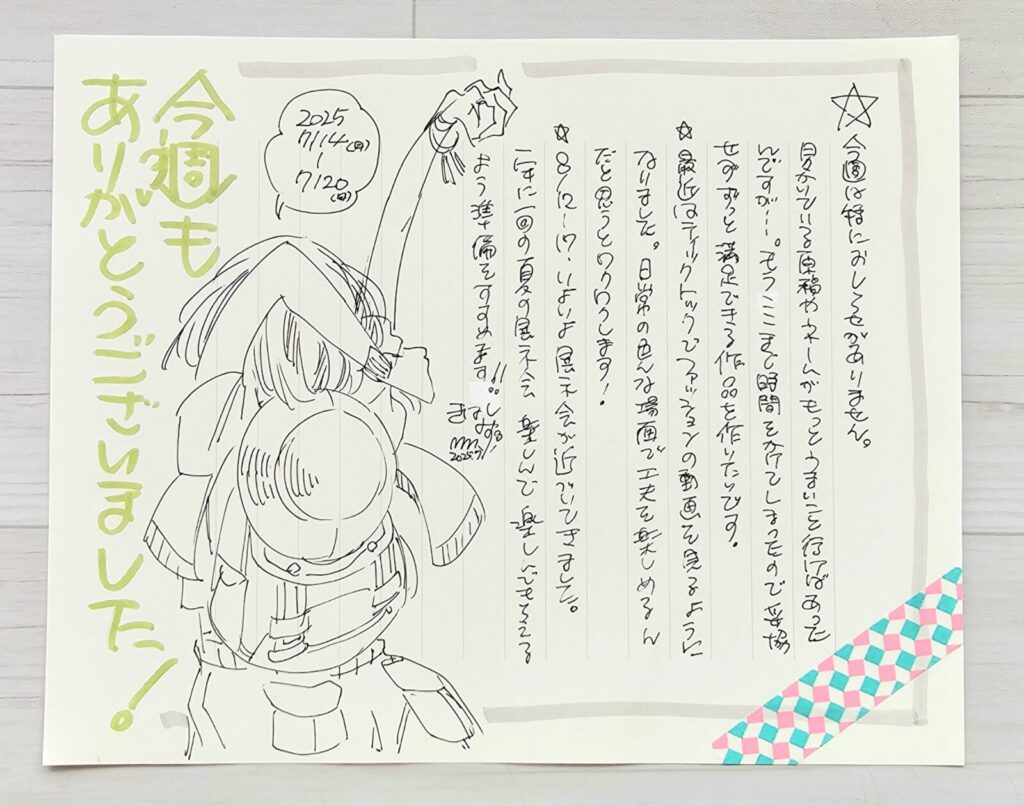 ☆今週は特におしらせがありません。
見かけている原稿やネームがもっとうまいこと行けばあった
んですが…。もうここまで時間をかけてしまったので妥協
せずずっと満足できる作品を作りたいです。
☆最近はティックトックでファッションの動画を見るように
なりました。日常の色んな場面で工夫を楽しめるん
だと思うとワクワクします！
☆8/12-17、いよいよ展示会が近づいてきました。
一年に一回の夏の展示会 楽しんで楽しんでもらえる
よう準備をすすめます!!
2025
7/14(月)
7/20(日)
今週も
ありがとうございました！